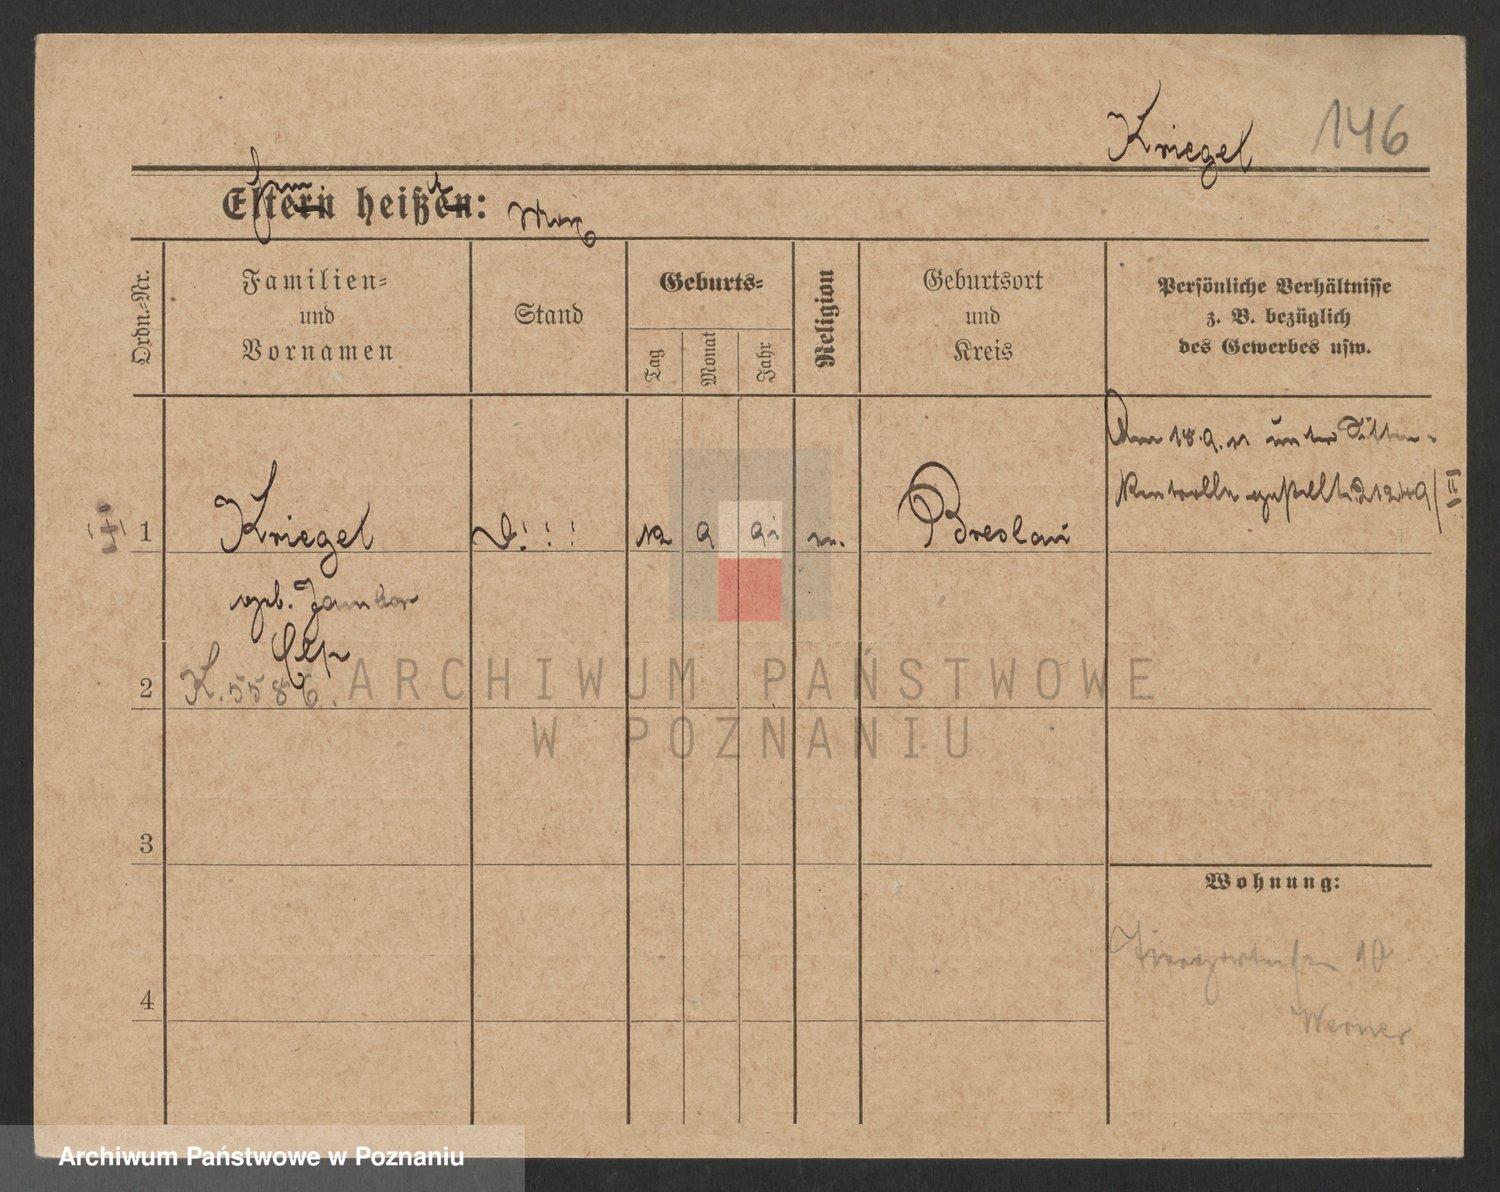 Kriegel 146
Eltern heißen: Max
Ordn.-Nr.
Familien-
und
Vornamen
Stand
Geburts-
Tag
Monat
Jahr
Religion
Geburtsort
und
Kreis
Persönliche Verhältnisse
z. B. bezüglich
des Gewerbes usw.
Am 18.9.11 unter Sitten-
kontrolle gestellt
1 Kriegel Breslau
geb.
Else
2 K. 5586.
3
4
Wohnung:
Tiergartenstr. 10
Werner
ARCHIWUM PAŃSTWOWE
W POZNANIU
Archiwum Państwowe w Poznaniu